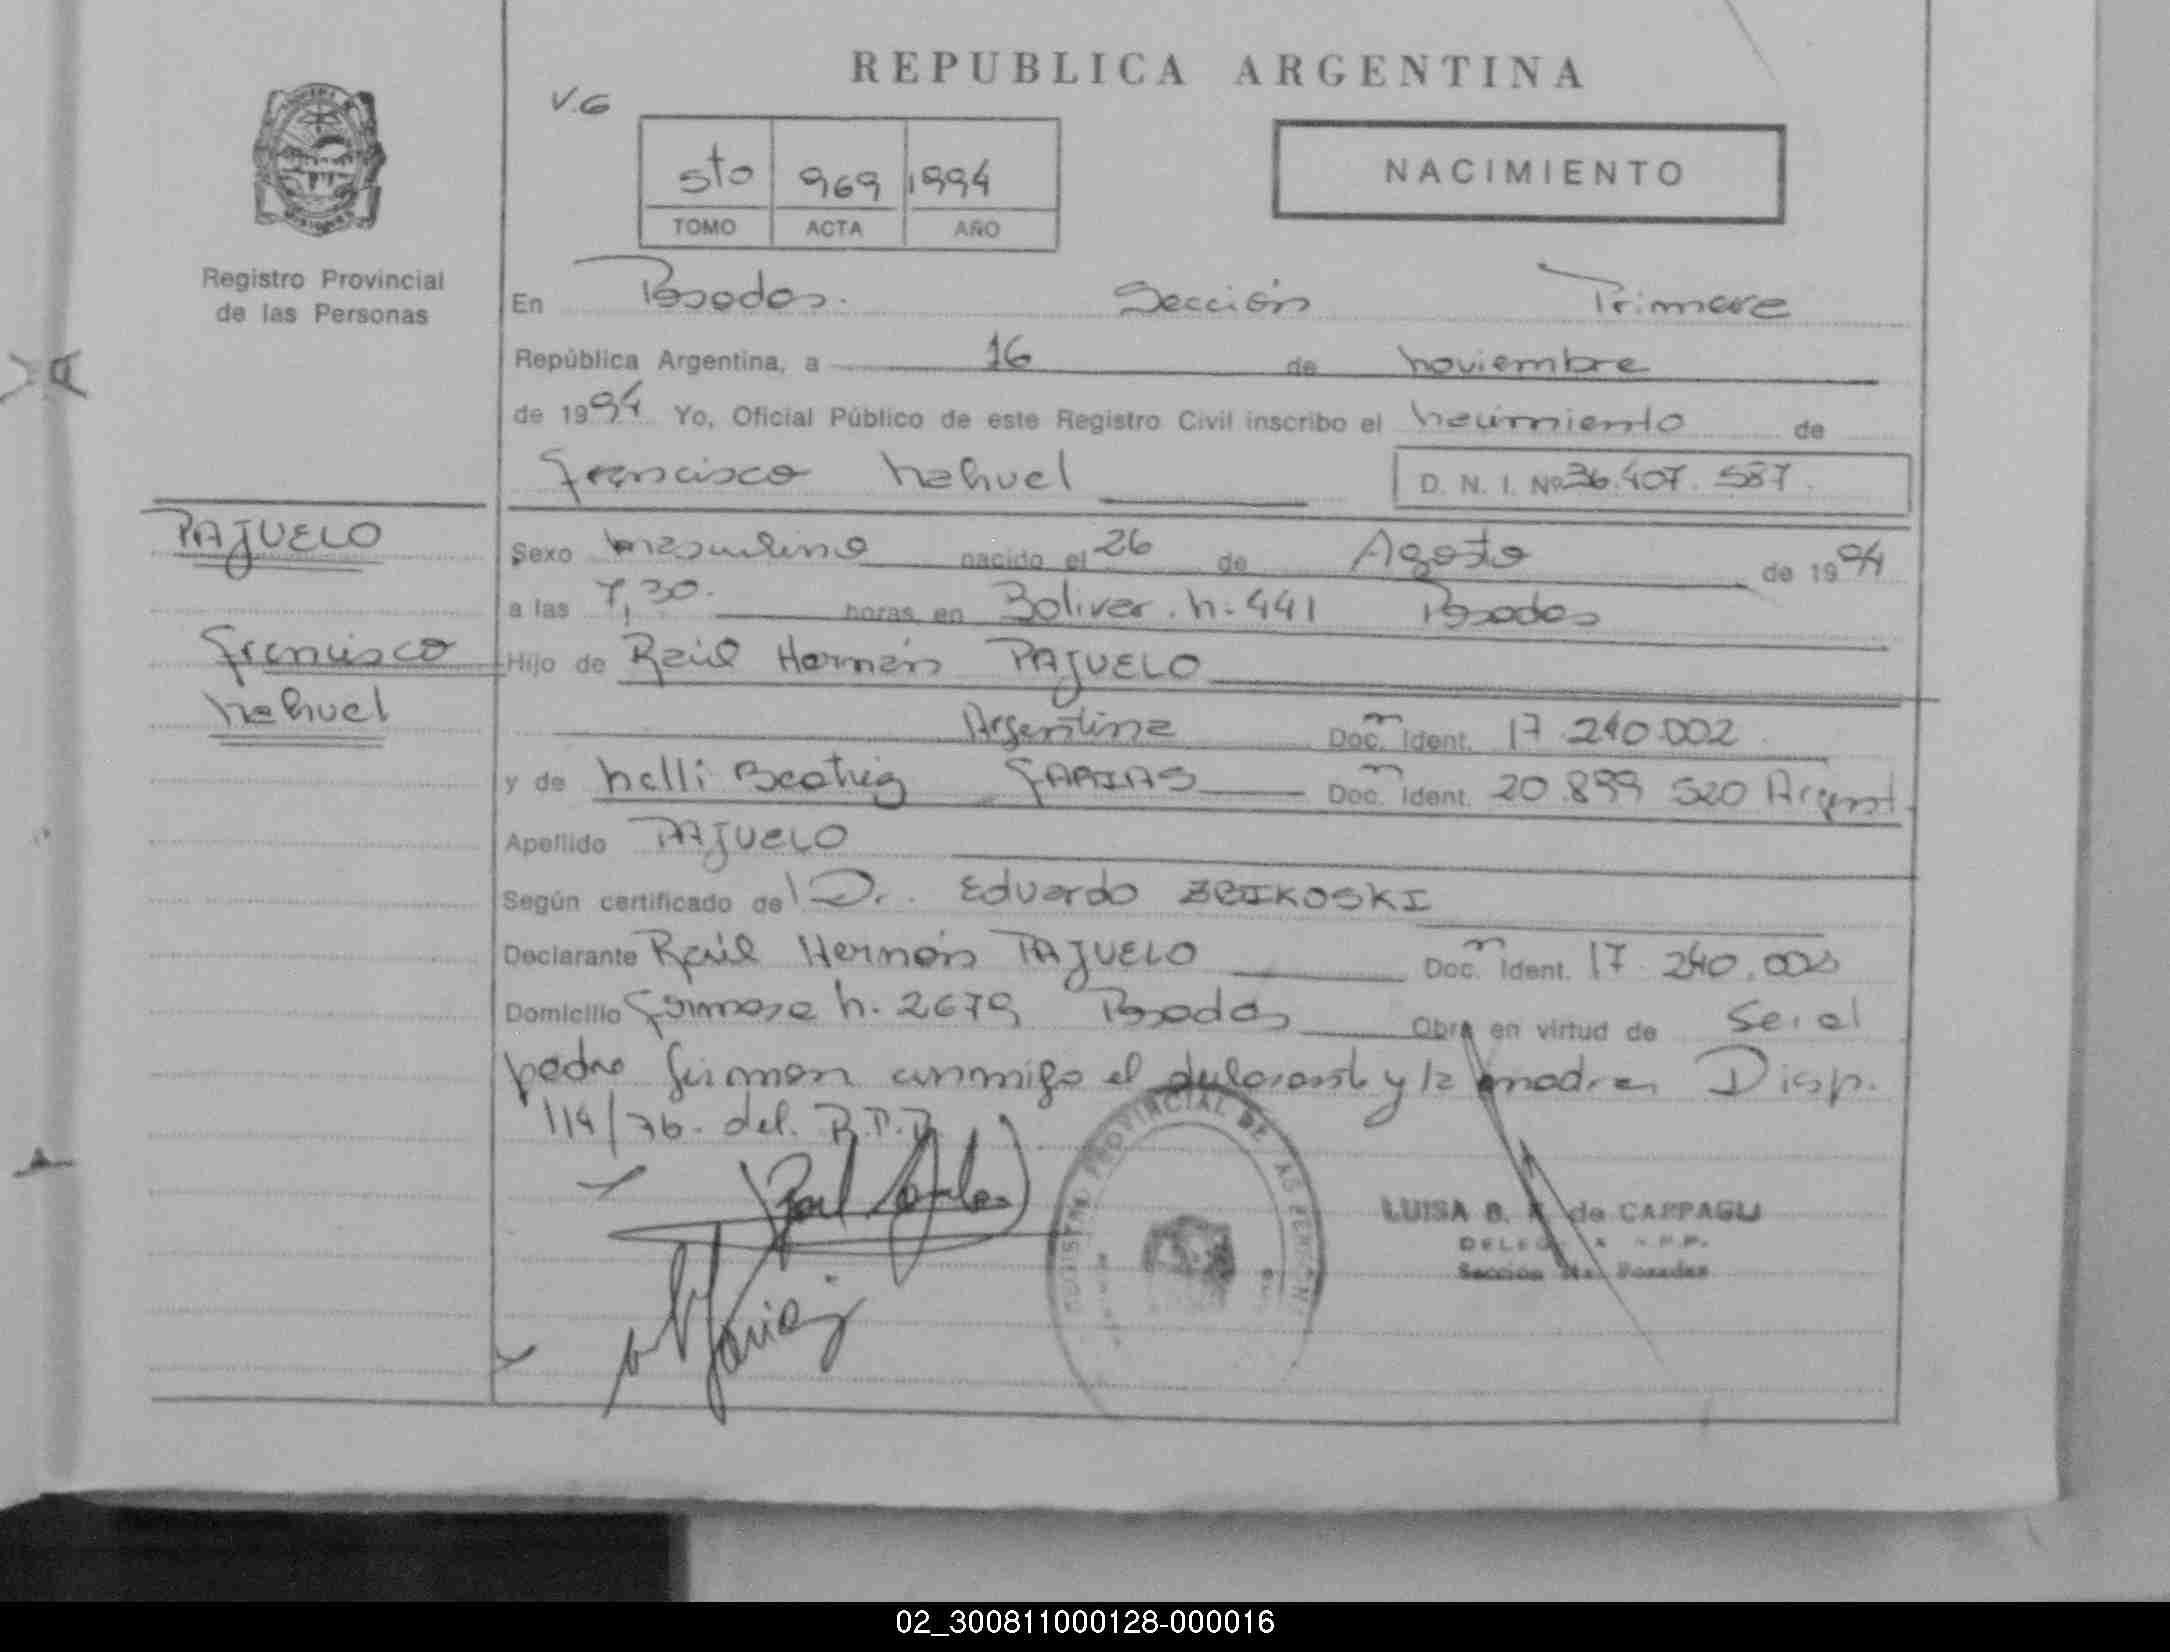 REPUBLICA ARGENTINA
V.G
5to 969 1994
TOMO ACTA AÑO
NACIMIENTO
Registro Provincial
de las Personas
En Posadas. Sección Primera
República Argentina, a 16 de noviembre
de 1994 Yo, Oficial Público de este Registro Civil inscribo el nacimiento de
Francisco Nahuel D. N. I. Nº 36.407.587
PAJUELO
Francisco
Nahuel
Sexo masculino nacido el 26 de Agosto de 1994
a las 7,30. horas en Bolivar. N. 441 Posadas
Hijo de Raúl Hernán PAJUELO
Argentina Doc. Ident. 17.240.002
y de Nelli Beatriz FARIAS Doc. Ident. 20.899 520 Argent.
Apellido PAJUELO
Según certificado del Dr. Eduardo
Declarante Raúl Hernán PAJUELO Doc. Ident. 17.240.002
Domicilio Formosa N. 2679 Posadas Obra en virtud de Ser el
padre firman conmigo el declarante y la madre. Disp.
114/76. del. R.P.P
REGISTRO PROVINCIAL DE LAS PERSONAS
LUISA B. de CAPPAGLI
Sección 1ra. Posadas
02_300811000128-000016